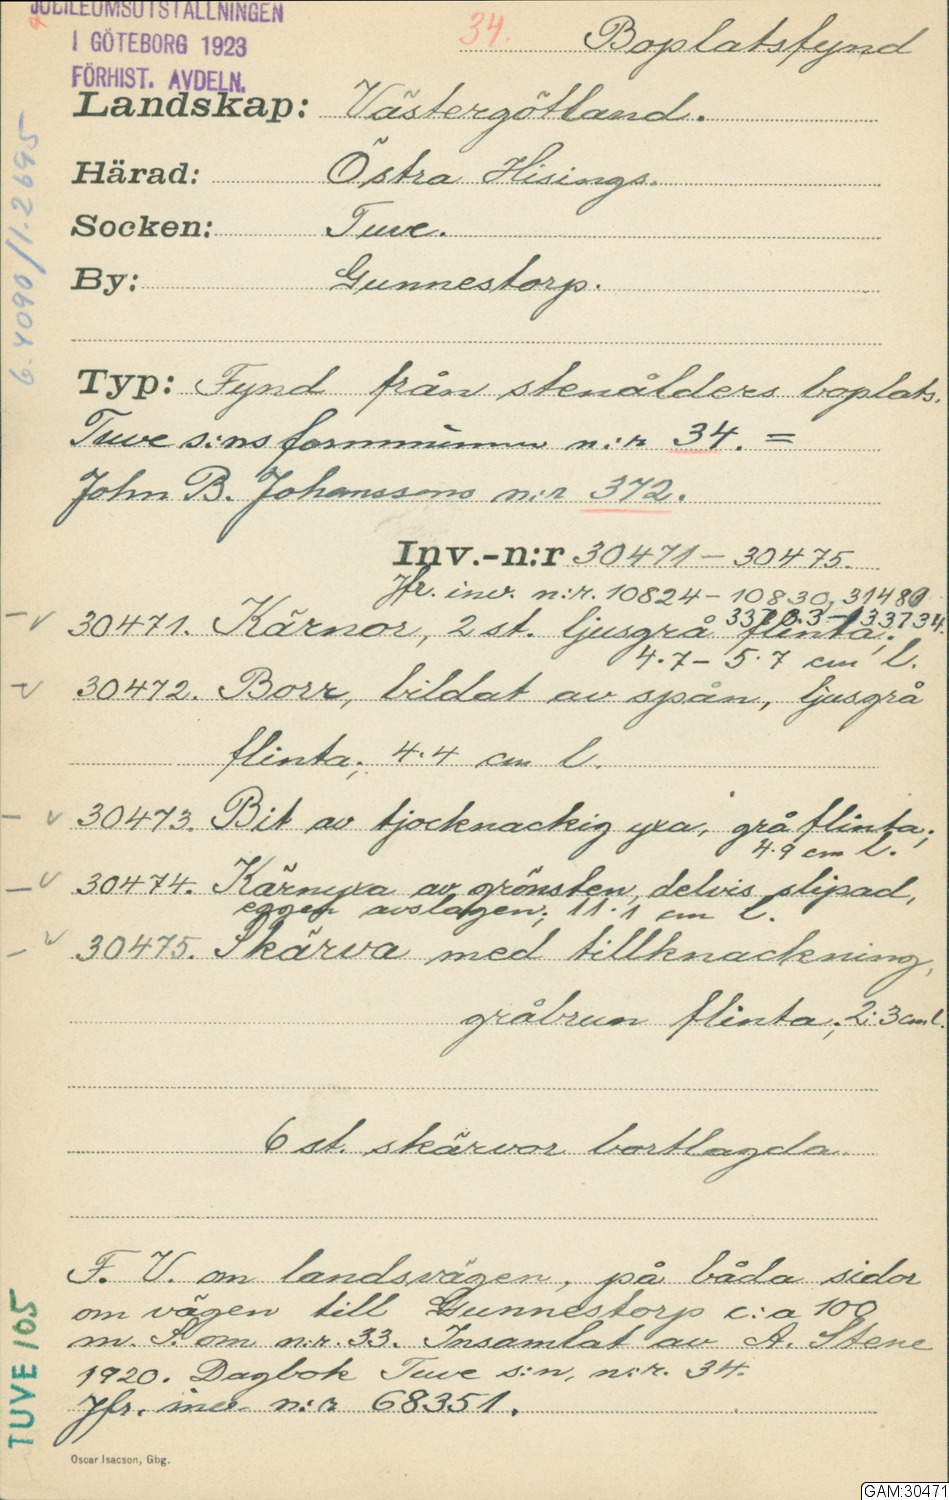 JUBILEUMSUTSTÄLLNINGEN
I GÖTEBORG 1923
FÖRHIST. AVDELN.
34. Boplatsfynd
Landskap: Västergötland.
Härad: Östra Hisings.
Socken: Tuve.
By: Gunnestorp.
Typ: Fynd från stenålders boplats.
Tuve s:ns fornminnen n:r 34. =
John B. Johanssons n:r 372.
Inv.-n:r 30471 – 30475.
Jfr. inv. n:r. 10824 – 10830, 31480
33703 – 33734.
30471. Kärnor, 2 st. ljusgrå flinta;
4.7 – 5.7 cm l.
30472. Borr, bildat av spån, ljusgrå
flinta; 4.4 cm l.
30473. Bit av tjocknackig yxa, grå flinta;
4.9 cm l.
30474. Kärnyxa av grönsten, delvis slipad,
eggen avslagen; 11.1 cm l.
30475. Skärva med tillknackning,
gråbrun flinta; 2.3 cm l.
6 st. skärvor bortlagda.
F. V. om landsvägen, på båda sidor
om vägen till Gunnestorp c:a 100
m. S. om n:r. 33. Insamlat av A. Stene
1920. Dagbok Tuve s:n, n:r. 34.
Jfr. inv. n:r 68351.
Oscar Isacson, Gbg.
6-4090/1-2695
TUVE 105
GAM:30471